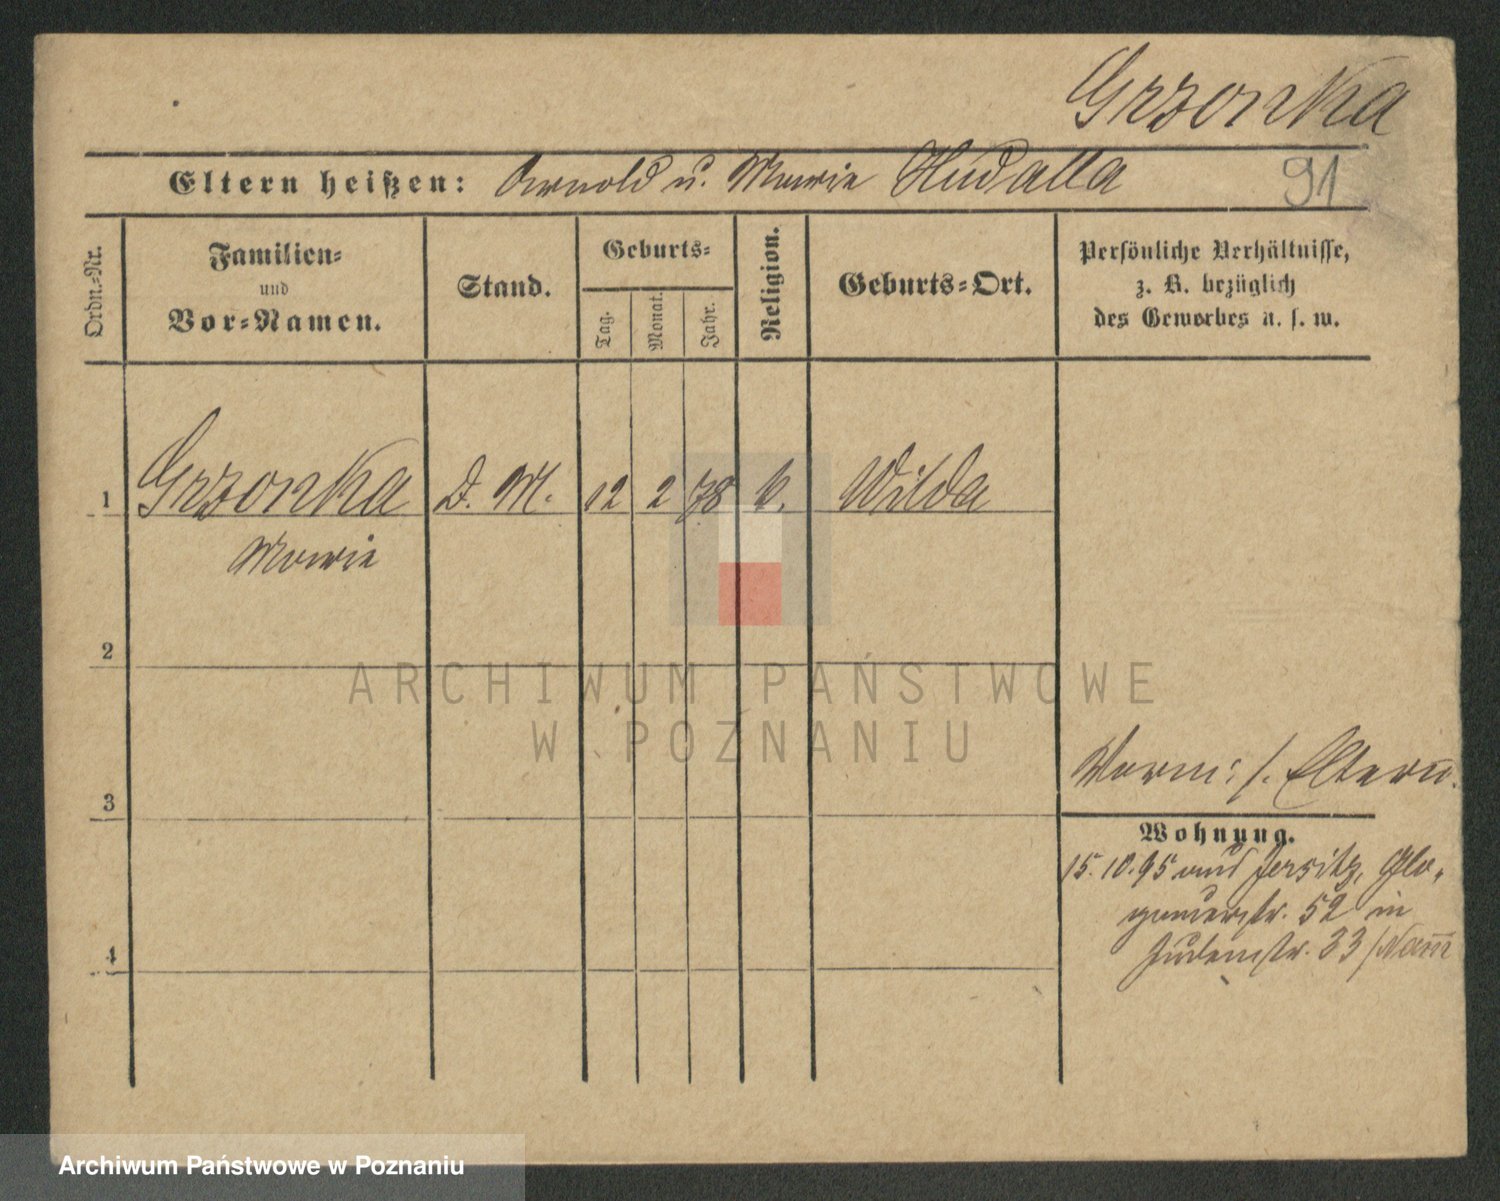 Grzonka
Eltern heißen: Arnold u. Marie Hudalla
91
Ordn.-Nr.
Familien-
und
Vor-Namen.
Stand.
Geburts-
Tag.
Monat.
Jahr.
Religion.
Geburts-Ort.
Persönliche Verhältnisse,
z. B. bezüglich
des Gewerbes u. s. w.
1 Grzonka D. M. 12 2 78 k. Wilda
Marie
2
3
4
Vorm: s. Eltern.
Wohnung.
15.10.95 aus Jersitz, Glo-
gauerstr. 52 in
Judenstr. 33
ARCHIWUM PAŃSTWOWE
W POZNANIU
Archiwum Państwowe w Poznaniu